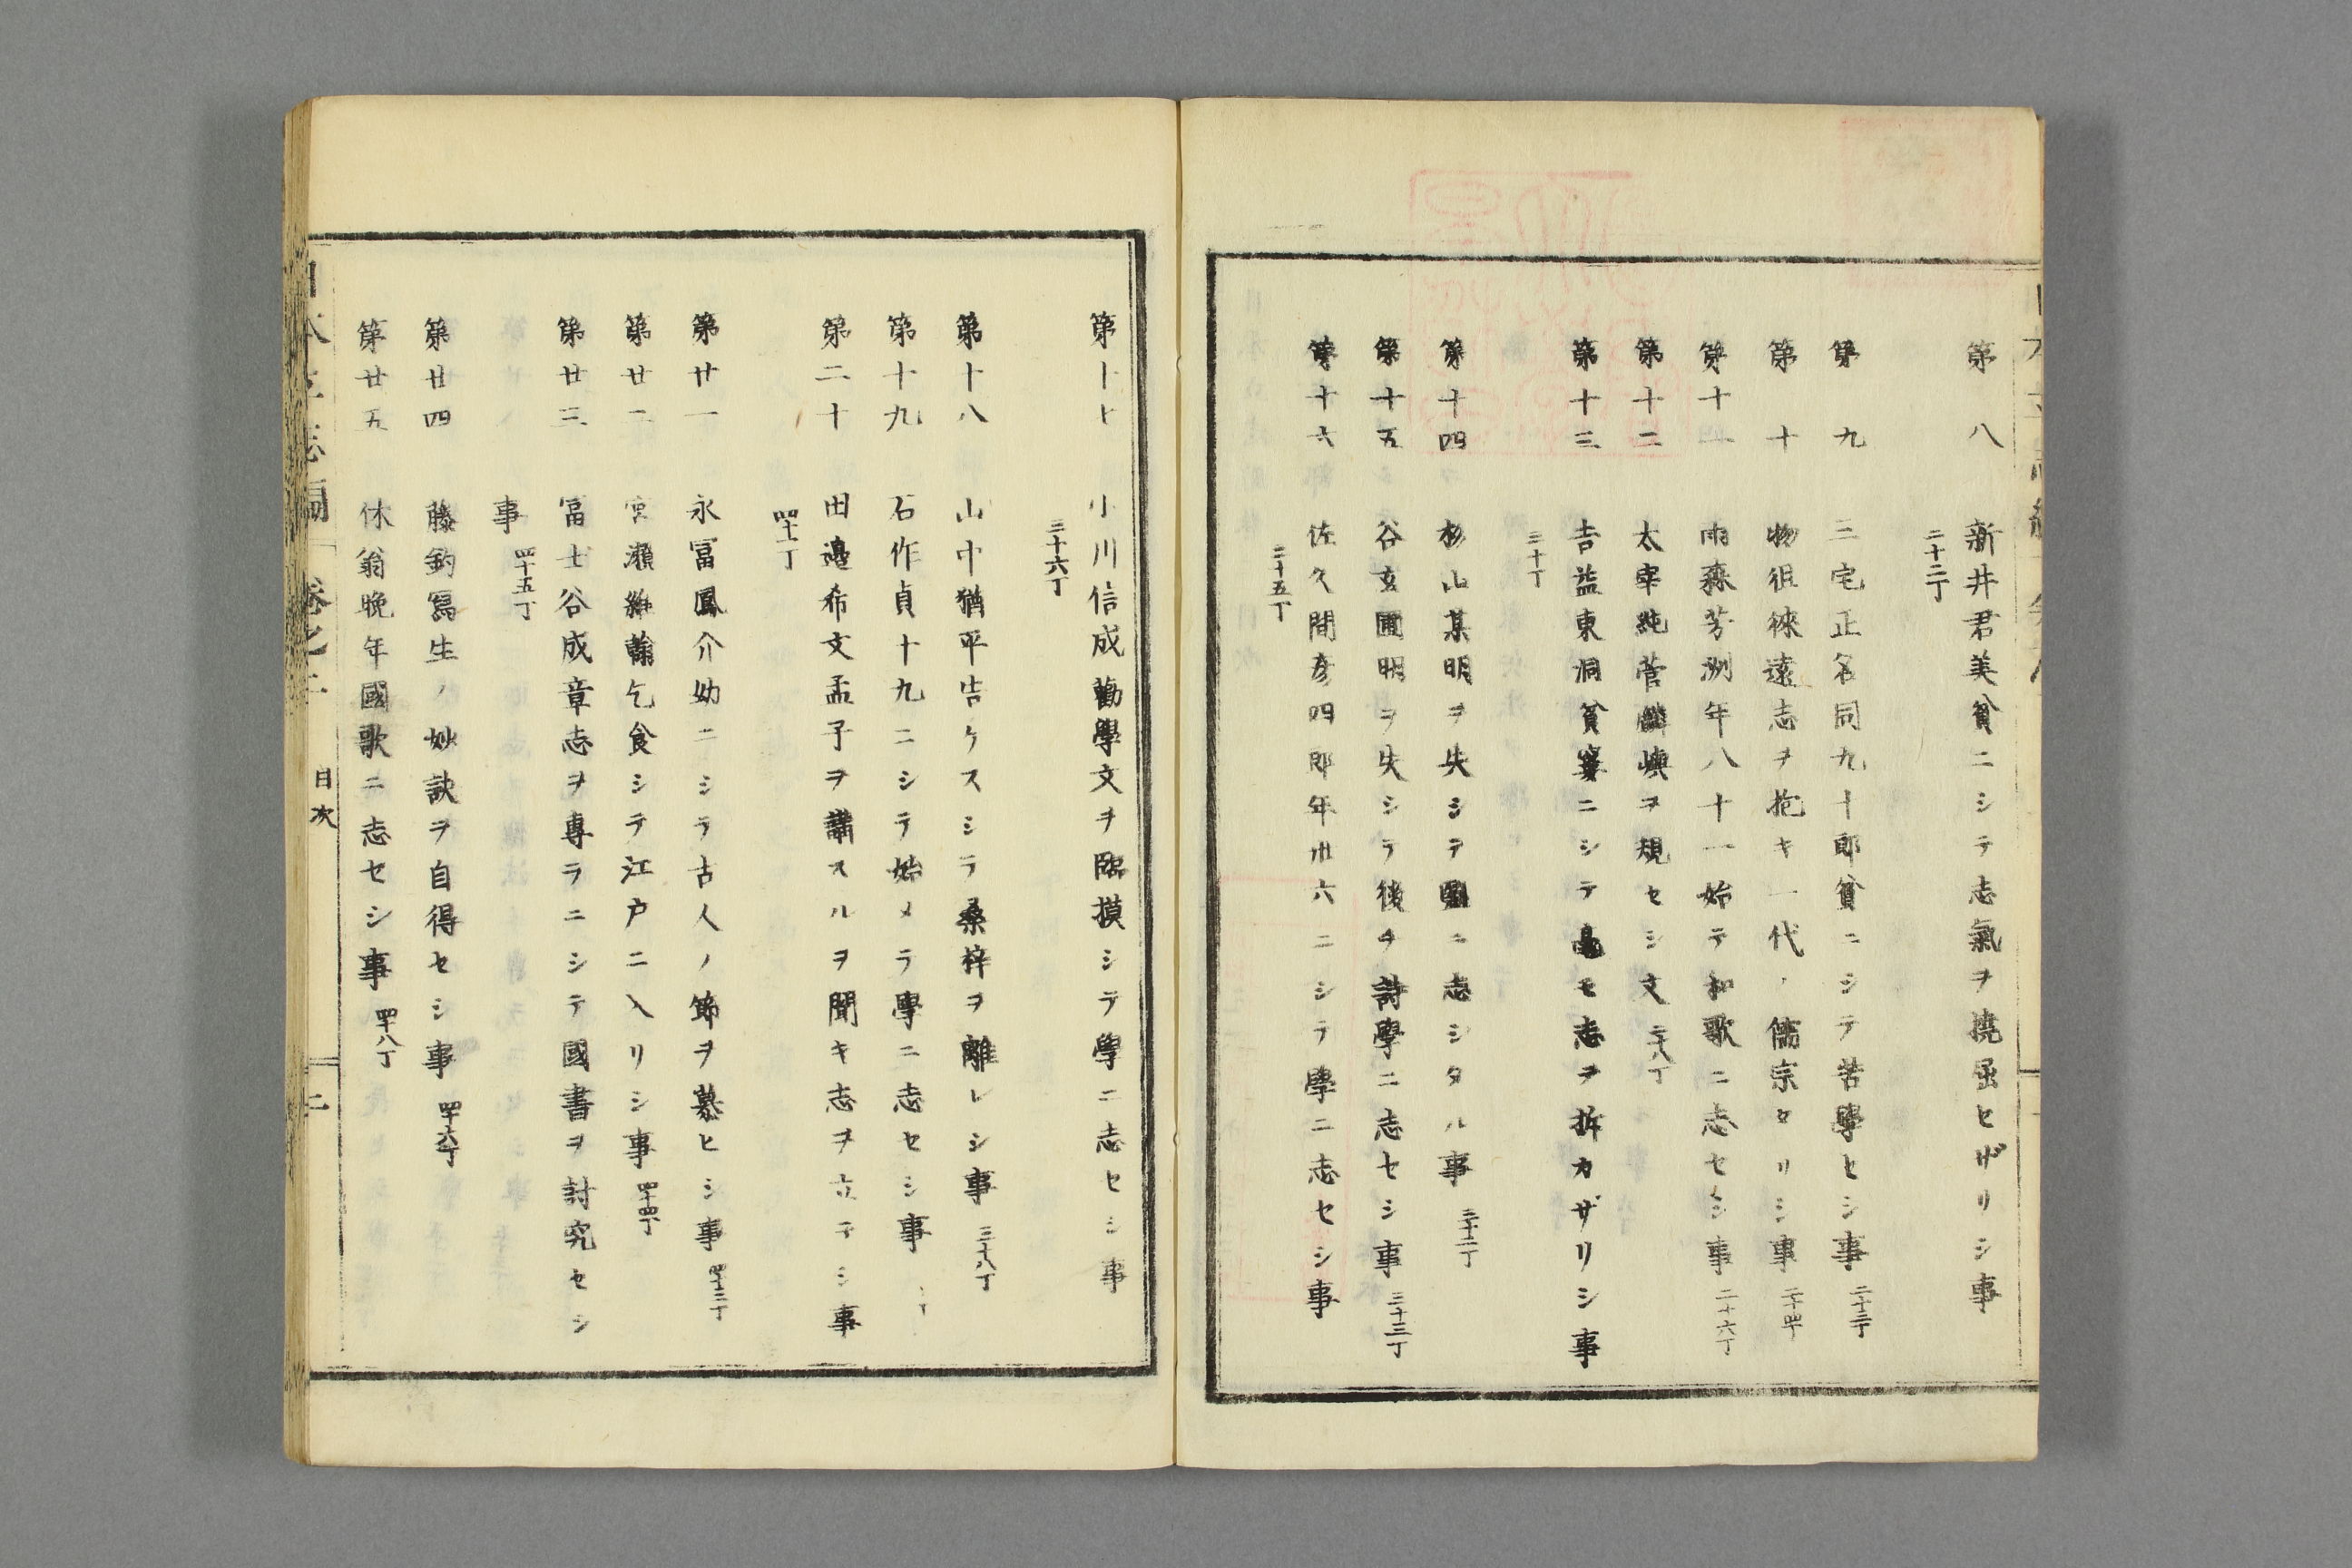 第八 新井君美貧ニシテ志氣ヲ撓屈セザリシ事
二十二丁
第九 三宅正名同九十郎貧ニシテ苦學セシ事 二十三丁
第十 物徂徠遠志ヲ抱キ一代ノ儒宗タリシ事 二十四丁
第十一 雨森芳洲年八十一始テ和歌ニ志セシ事 二十六丁
第十二 太宰純菅麟嶼ヲ規セシ文 二十八丁
第十三 吉益東洞貧窶ニシテ毫モ志ヲ折カザリシ事
三十丁
第十四 杉山某明ヲ失シテ ニ志シタル事 三十二丁
第十五 谷玄圃明ヲ失シテ後チ詩學ニ志セシ事 三十三丁
第十六 佐久間彦四郎年卅六ニシテ學ニ志セシ事
三十五丁
第十七 小川信成勸學文ヲ臨摸シテ學ニ志セシ事
三十六丁
第十八 山中猶平告ケスシテ桑梓ヲ離レシ事 三十八丁
第十九 石作貞十九ニシテ始メテ學ニ志セシ事
第二十 田邉希文孟子ヲ講スルヲ聞キ志ヲ立テシ事
四十一丁
第廿一 永冨鳳介幼ニシテ古人ノ節ヲ慕ヒシ事 四十三丁
第廿二 宮瀬維翰乞食シテ江戸ニ入リシ事 四十四丁
第廿三 冨士谷成章志ヲ專ラニシテ國書ヲ討究セシ
事 四十五丁
第廿四 藤釣寫生ノ妙訣ヲ自得セシ事 四十六丁
第廿五 休翁晩年國歌ニ志セシ事 四十八丁
日本立志編 卷之二 目次 二